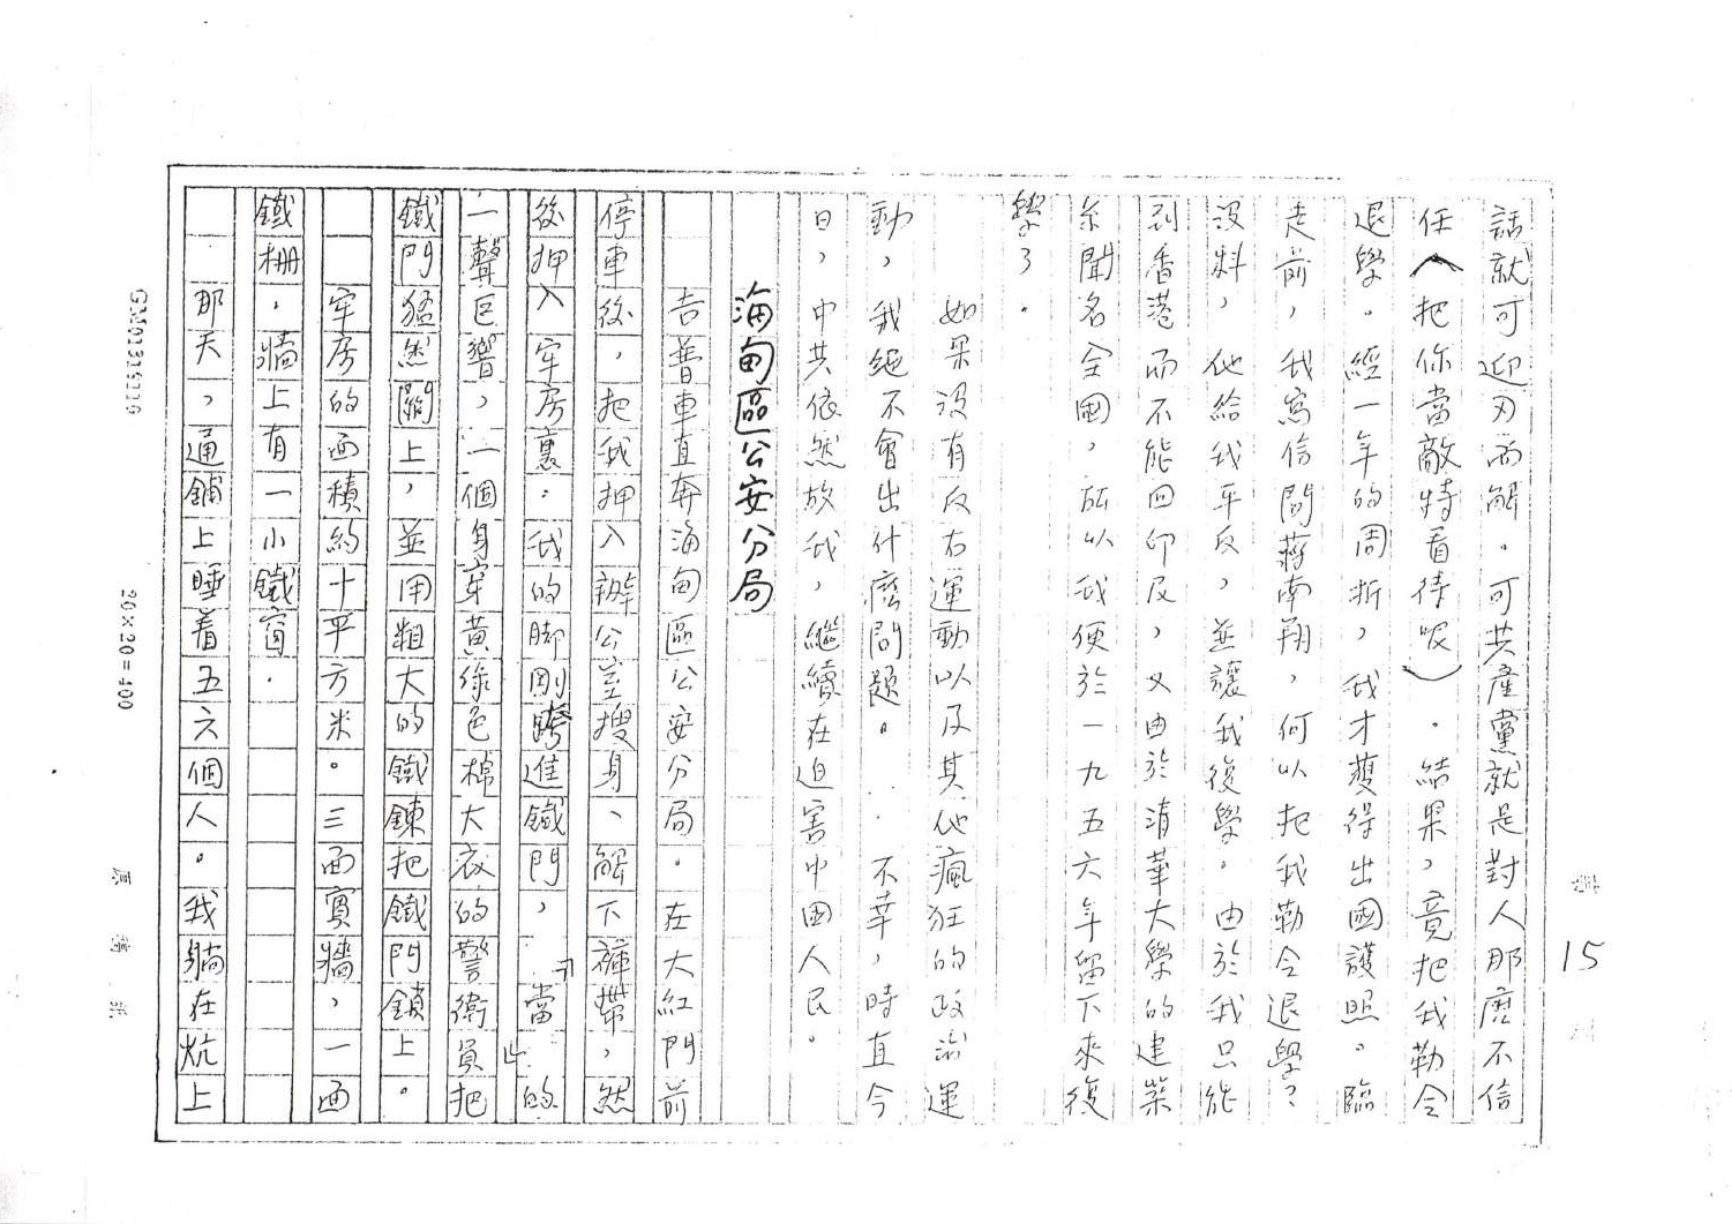 話就可迎刃而解。可共產黨就是對人那麽不信
任(把你當敵特看待呢)。結果,竟把我勒令
退學。經一年的周折,我才獲得出國護照。臨
走前,我寫信問蔣南翔,何以把我勒令退學?
沒料,他給我平反,並讓我復學。由於我只能
到香港而不能回印尼,又由於清華大學的建築
系聞名全國,所以我便於一九五六年留下來復
學了。
如果沒有反右運動以及其他瘋狂的政治運
動,我絕不會出什麽問題。不幸,時直今
日,中共依然故我,繼續在迫害中國人民。
海甸區公安分局
吉普車直奔海甸區公安分局。在大紅門前
停車後,把我押入辦公室搜身、解下褲帶,然
後押入牢房裏。我的脚剛跨進鐵門,「當」的
一聲巨響,一個身穿黃綠色棉大衣的警衛員把
鐵門猛然關上,並用粗大的鐵鍊把鐵門鎖上。
牢房的面積約十平方米。三面實牆,一面
鐵柵,牆上有一小鐵窗。
那天,通鋪上睡着五六個人。我躺在炕上
15
20×20=400